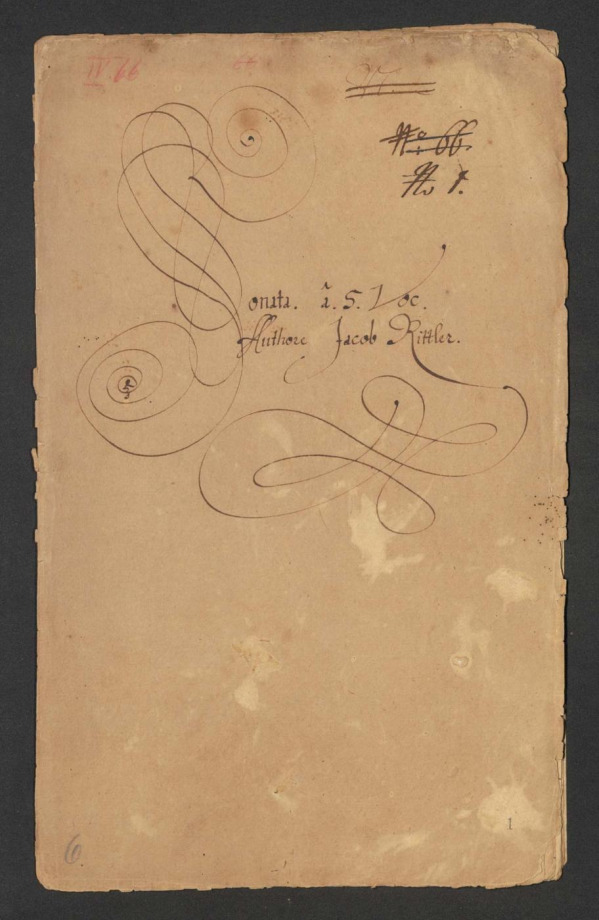 IV. 66
66
No 66.
No 1.
Sonata. â. 5. Voc.
Authore Jacob Rittler.
1
6